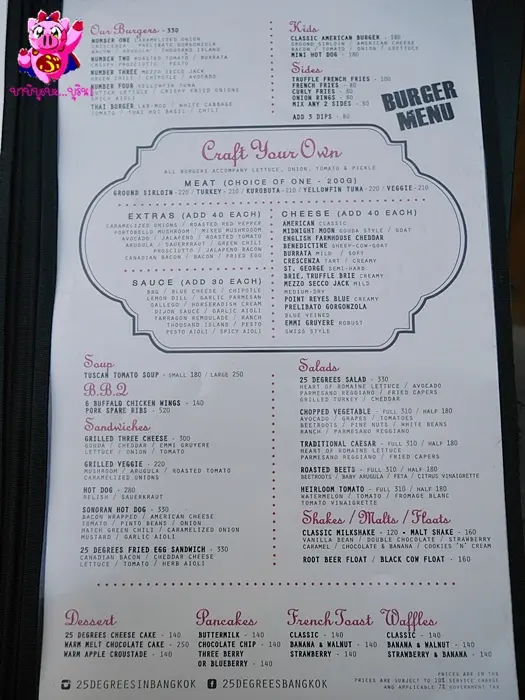 Our Burgers - 330
NUMBER ONE CARAMELIZED ONION
CRESCENZA / PRELIBATO GORGONZOLA
BACON / ARUGULA / THOUSAND ISLAND
NUMBER TWO ROASTED TOMATO / BURRATA
PROSCIUTTO / PESTO
NUMBER THREE MEZZO SECCO JACK
GREEN CHILI / CHIPOTLE / AVOCADO
NUMBER FOUR YELLOWFIN TUNA
BUTTER LETTUCE / CRISPY FRIED ONIONS
SPICY AIOLI
THAI BURGER LAB-MOO / WHITE CABBAGE
TOMATO / THAI BASIL / HOT CHILI
Kids
CLASSIC AMERICAN BURGER - 180
GROUND SIRLOIN / AMERICAN CHEESE
BACON / TOMATO / ONION / LETTUCE
MINI HOT DOG - 180
Sides
TRUFFLE FRENCH FRIES - 100
FRENCH FRIES - 80
CURLY FRIES - 80
ONION RINGS - 80
MIX ANY 2 SIDES - 80
ADD 3 DIPS - 80
BURGER
MENU
Craft Your Own
ALL BURGERS ACCOMPANY LETTUCE, ONION, TOMATO & PICKLE
MEAT (CHOICE OF ONE - 200G)
GROUND SIRLOIN -220 / TURKEY -210 / KUROBUTA -210 / YELLOWFIN TUNA -220 / VEGGIE -210
EXTRAS (ADD 40 EACH)
CARAMELIZED ONIONS / ROASTED RED PEPPER
PORTOBELLO MUSHROOM / MIXED MUSHROOM
AVOCADO / JALAPENO / ROASTED TOMATO
ARUGULA / SAUERKRAUT / GREEN CHILI
PROSCIUTTO / JALAPENO BACON
CANADIAN BACON / BACON / FRIED EGG
SAUCE (ADD 30 EACH)
BBQ / BLUE CHEESE / CHIPOTLE
LEMON DILL / GARLIC PARMESAN
GALLEGO / HORSERADISH CREAM
DIJON SAUCE / GARLIC AIOLI
TARRAGON REMOULADE / RANCH
THOUSAND ISLAND / PESTO
PESTO AIOLI / SPICY AIOLI
CHEESE (ADD 40 EACH)
AMERICAN CLASSIC
MIDNIGHT MOON GOUDA STYLE / GOAT
ENGLISH FARMHOUSE CHEDDAR
BENEDICTINE SHEEP-COW-GOAT
BURRATA MILD / SOFT
CRESCENZA TART / CREAMY
ST. GEORGE SEMI-HARD
BRIE, TRUFFLE BRIE CREAMY
MEZZO SECCO JACK MILD
MEDIUM-DRY
POINT REYES BLUE CREAMY
PRELIBATO GORGONZOLA
BLUE VEINED
EMMI GRUYERE ROBUST
SWISS STYLE
Soup
TUSCAN TOMATO SOUP - SMALL 180 / LARGE 250
B.B.Q
6 BUFFALO CHICKEN WINGS - 140
PORK SPARE RIBS - 520
Sandwiches
GRILLED THREE CHEESE - 300
GOUDA / CHEDDAR / EMMI GRUYERE
LETTUCE / ONION / TOMATO
GRILLED VEGGIE - 220
MUSHROOM / ARUGULA / ROASTED TOMATO
CARAMELIZED ONIONS
HOT DOG - 280
RELISH / SAUERKRAUT
SONORAN HOT DOG - 330
BACON WRAPPED / AMERICAN CHEESE
TOMATO / PINTO BEANS / ONION
HATCH GREEN CHILI / CARAMELIZED ONION
MUSTARD / GARLIC AIOLI
25 DEGREES FRIED EGG SANDWICH - 330
CANADIAN BACON / CHEDDAR CHEESE
LETTUCE / TOMATO / HERB AIOLI
Salads
25 DEGREES SALAD - 330
HEART OF ROMAINE LETTUCE / AVOCADO
PARMESANO REGGIANO / FRIED CAPERS
GRILLED TURKEY / CHEDDAR
CHOPPED VEGETABLE - FULL 310 / HALF 180
AVOCADO / GRAPES / TOMATOES
BEETROOTS / PINE NUTS / WHITE BEANS
RANCH / PARMESANO REGGIANO
TRADITIONAL CAESAR - FULL 310 / HALF 180
HEART OF ROMAINE LETTUCE
PARMESANO REGGIANO / FRIED CAPERS
ROASTED BEETS - FULL 310 / HALF 180
BEETROOTS / BABY ARUGULA / FETA / CITRUS VINAIGRETTE
HEIRLOOM TOMATO - FULL 310 / HALF 180
WATERMELON / TOMATO / FROMAGE BLANC
TOMATO VINAIGRETTE
Shakes / Malts / Floats
CLASSIC MILKSHAKE - 120 - MALT SHAKE - 160
VANILLA BEAN / DOUBLE CHOCOLATE / STRAWBERRY
CARAMEL / CHOCOLATE & BANANA / COOKIES 'N' CREAM
ROOT BEER FLOAT / BLACK COW FLOAT - 160
Dessert
25 DEGREES CHEESE CAKE - 140
WARM MELT CHOCOLATE CAKE - 250
WARM APPLE CROUSTADE - 140
Pancakes
BUTTERMILK - 140
CHOCOLATE CHIP - 140
THREE BERRY
OR BLUEBERRY - 140
French Toast
CLASSIC - 140
BANANA & WALNUT - 140
STRAWBERRY - 140
Waffles
CLASSIC - 140
BANANA & WALNUT - 140
STRAWBERRY & BANANA - 140
25DEGREESINBANGKOK
25DEGREESBANGKOK
PRICES ARE IN THB
PRICES ARE SUBJECT TO 10% SERVICE CHARGE
AND APPLICABLE 7% GOVERNMENT TAX